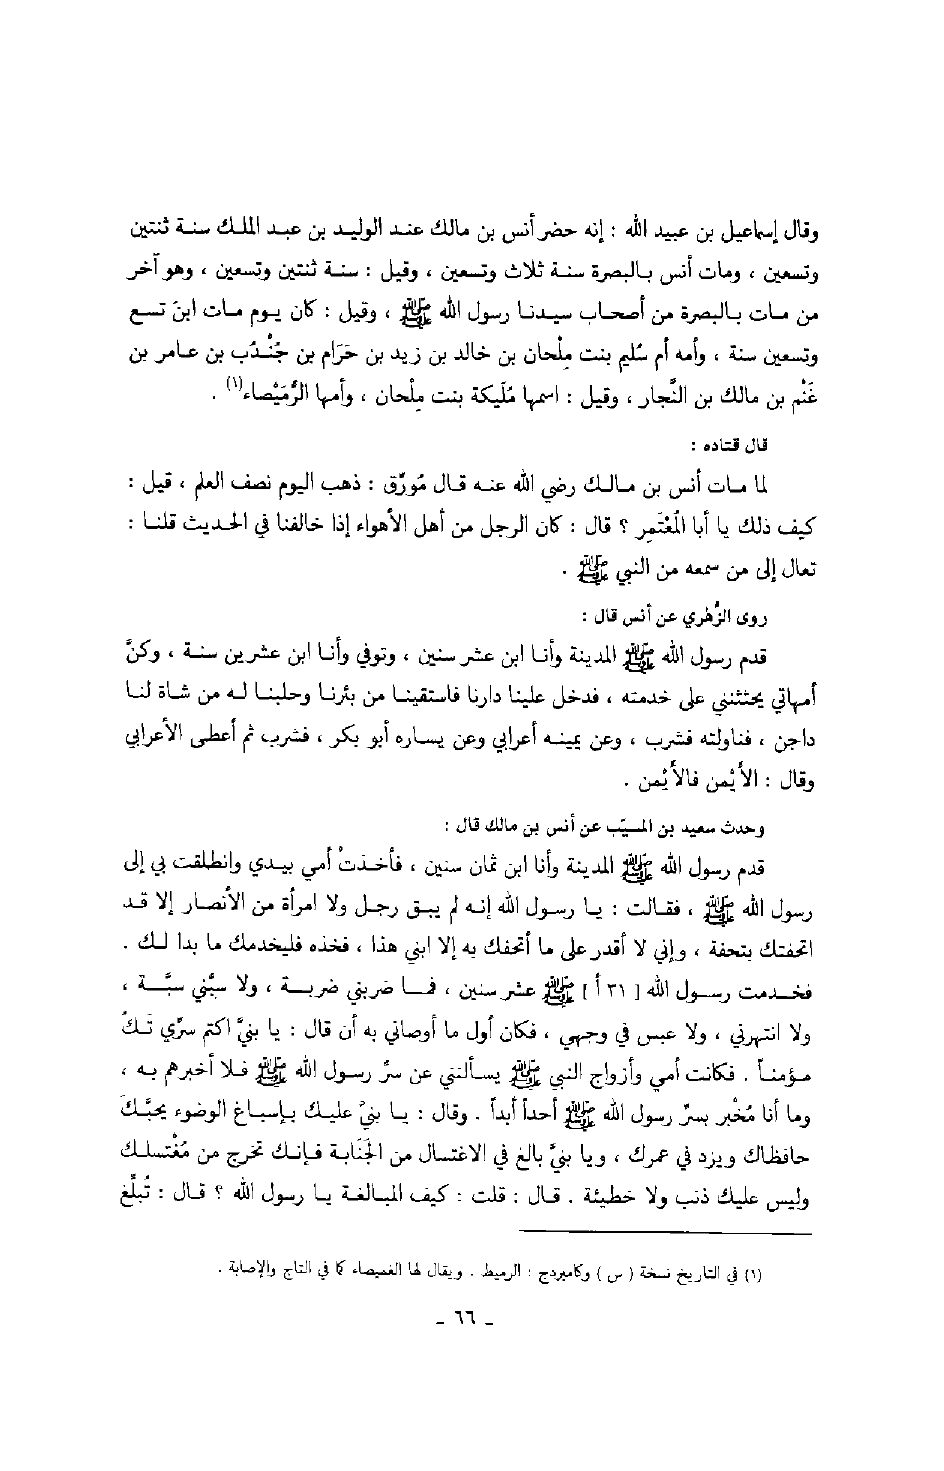 وقال إسماعيل بن عبيد الله : إنه حضر أنس بن مالك عند الوليد بن عبد الملك سنة ثنتين
وتسعين ، ومات أنس بالبصرة سنة ثلاث وتسعين ، وقيل : سنة ثنتين وتسعين ، وهو آخر
من مات بالبصرة من أصحاب سيدنا رسول الله ﷺ ، وقيل : كان يوم مات ابنَ تسع
وتسعين سنة ، وأمه أم سُليم بنت مِلْحان بن خالد بن زيد بن حَرَام بن جُنْدُب بن عامر بن
غَنْم بن مالك بن النَّجار ، وقيل : اسمها مُلَيكة بنت مِلْحان ، وأمها الرُّمَيْصاء(١) .
قال قتاده :
لما مات أنس بن مالك رضي الله عنه قال مُورِّق : ذهب اليوم نصف العلم ، قيل :
كيف ذلك يا أبا المُعْتَمِر ؟ قال : كان الرجل من أهل الأهواء إذا خالفنا في الحديث قلنا :
تعال إلى من سمعه من النبي ﷺ .
روى الزُّهري عن أنس قال :
قدم رسول الله ﷺ المدينة وأنا ابن عشر سنين ، وتوفي وأنا ابن عشرين سنة ، وكنَّ
أمهاتي يحثثنني على خدمته ، فدخل علينا دارنا فاستقينا من بئرنا وحلبنا له من شاة لنا
داجن ، فناولته فشرب ، وعن يمينه أعرابي وعن يساره أبو بكر ، فشرب ثم أعطى الأعرابي
وقال : الأَيْمن فالأَيْمن .
وحدث سعيد بن المسيّب عن أنس بن مالك قال :
قدم رسول الله ﷺ المدينة وأنا ابن ثمان سنين ، فأخذتْ أمي بيدي وانطلقت بي إلى
رسول الله ﷺ ، فقالت : يا رسول الله إنه لم يبق رجل ولا امرأة من الأنصار إلا قد
اتحفتك بتحفة ، وإني لا أقدر على ما أتحفك به إلا ابني هذا ، فخذه فليخدمك ما بدا لك .
فخدمت رسول الله [ ٣١ أ ] ﷺ عشر سنين ، فما ضربني ضربة ، ولا سبَّني سبَّة ،
ولا انتهرني ، ولا عبس في وجهي ، فكان أول ما أوصاني به أن قال : يا بنيَّ اكتم سرِّي تكُ
مؤمناً . فكانت أمي وأزواج النبي ﷺ يسألنني عن سرِّ رسول الله ﷺ فلا أخبرهم به ،
وما أنا مُخْبر بسرِّ رسول الله ﷺ أحداً أبداً . وقال : يا بنيّ عليك بإسباغ الوضوء يحبَّكَ
حافظاك ويزد في عمرك ، ويا بنيَّ بالغ في الاغتسال من الجَنَابة فإنك تخرج من مُغْتسلك
وليس عليك ذنب ولا خطيئة . قال : قلت : كيف المبالغة يا رسول الله ؟ قال : تُبلِّغ
(١) في التاريخ نسخة ( س ) وكامبردج : الرميط . ويقال لها الغميصاء كما في التاج والإصابة .
- ٦٦ -